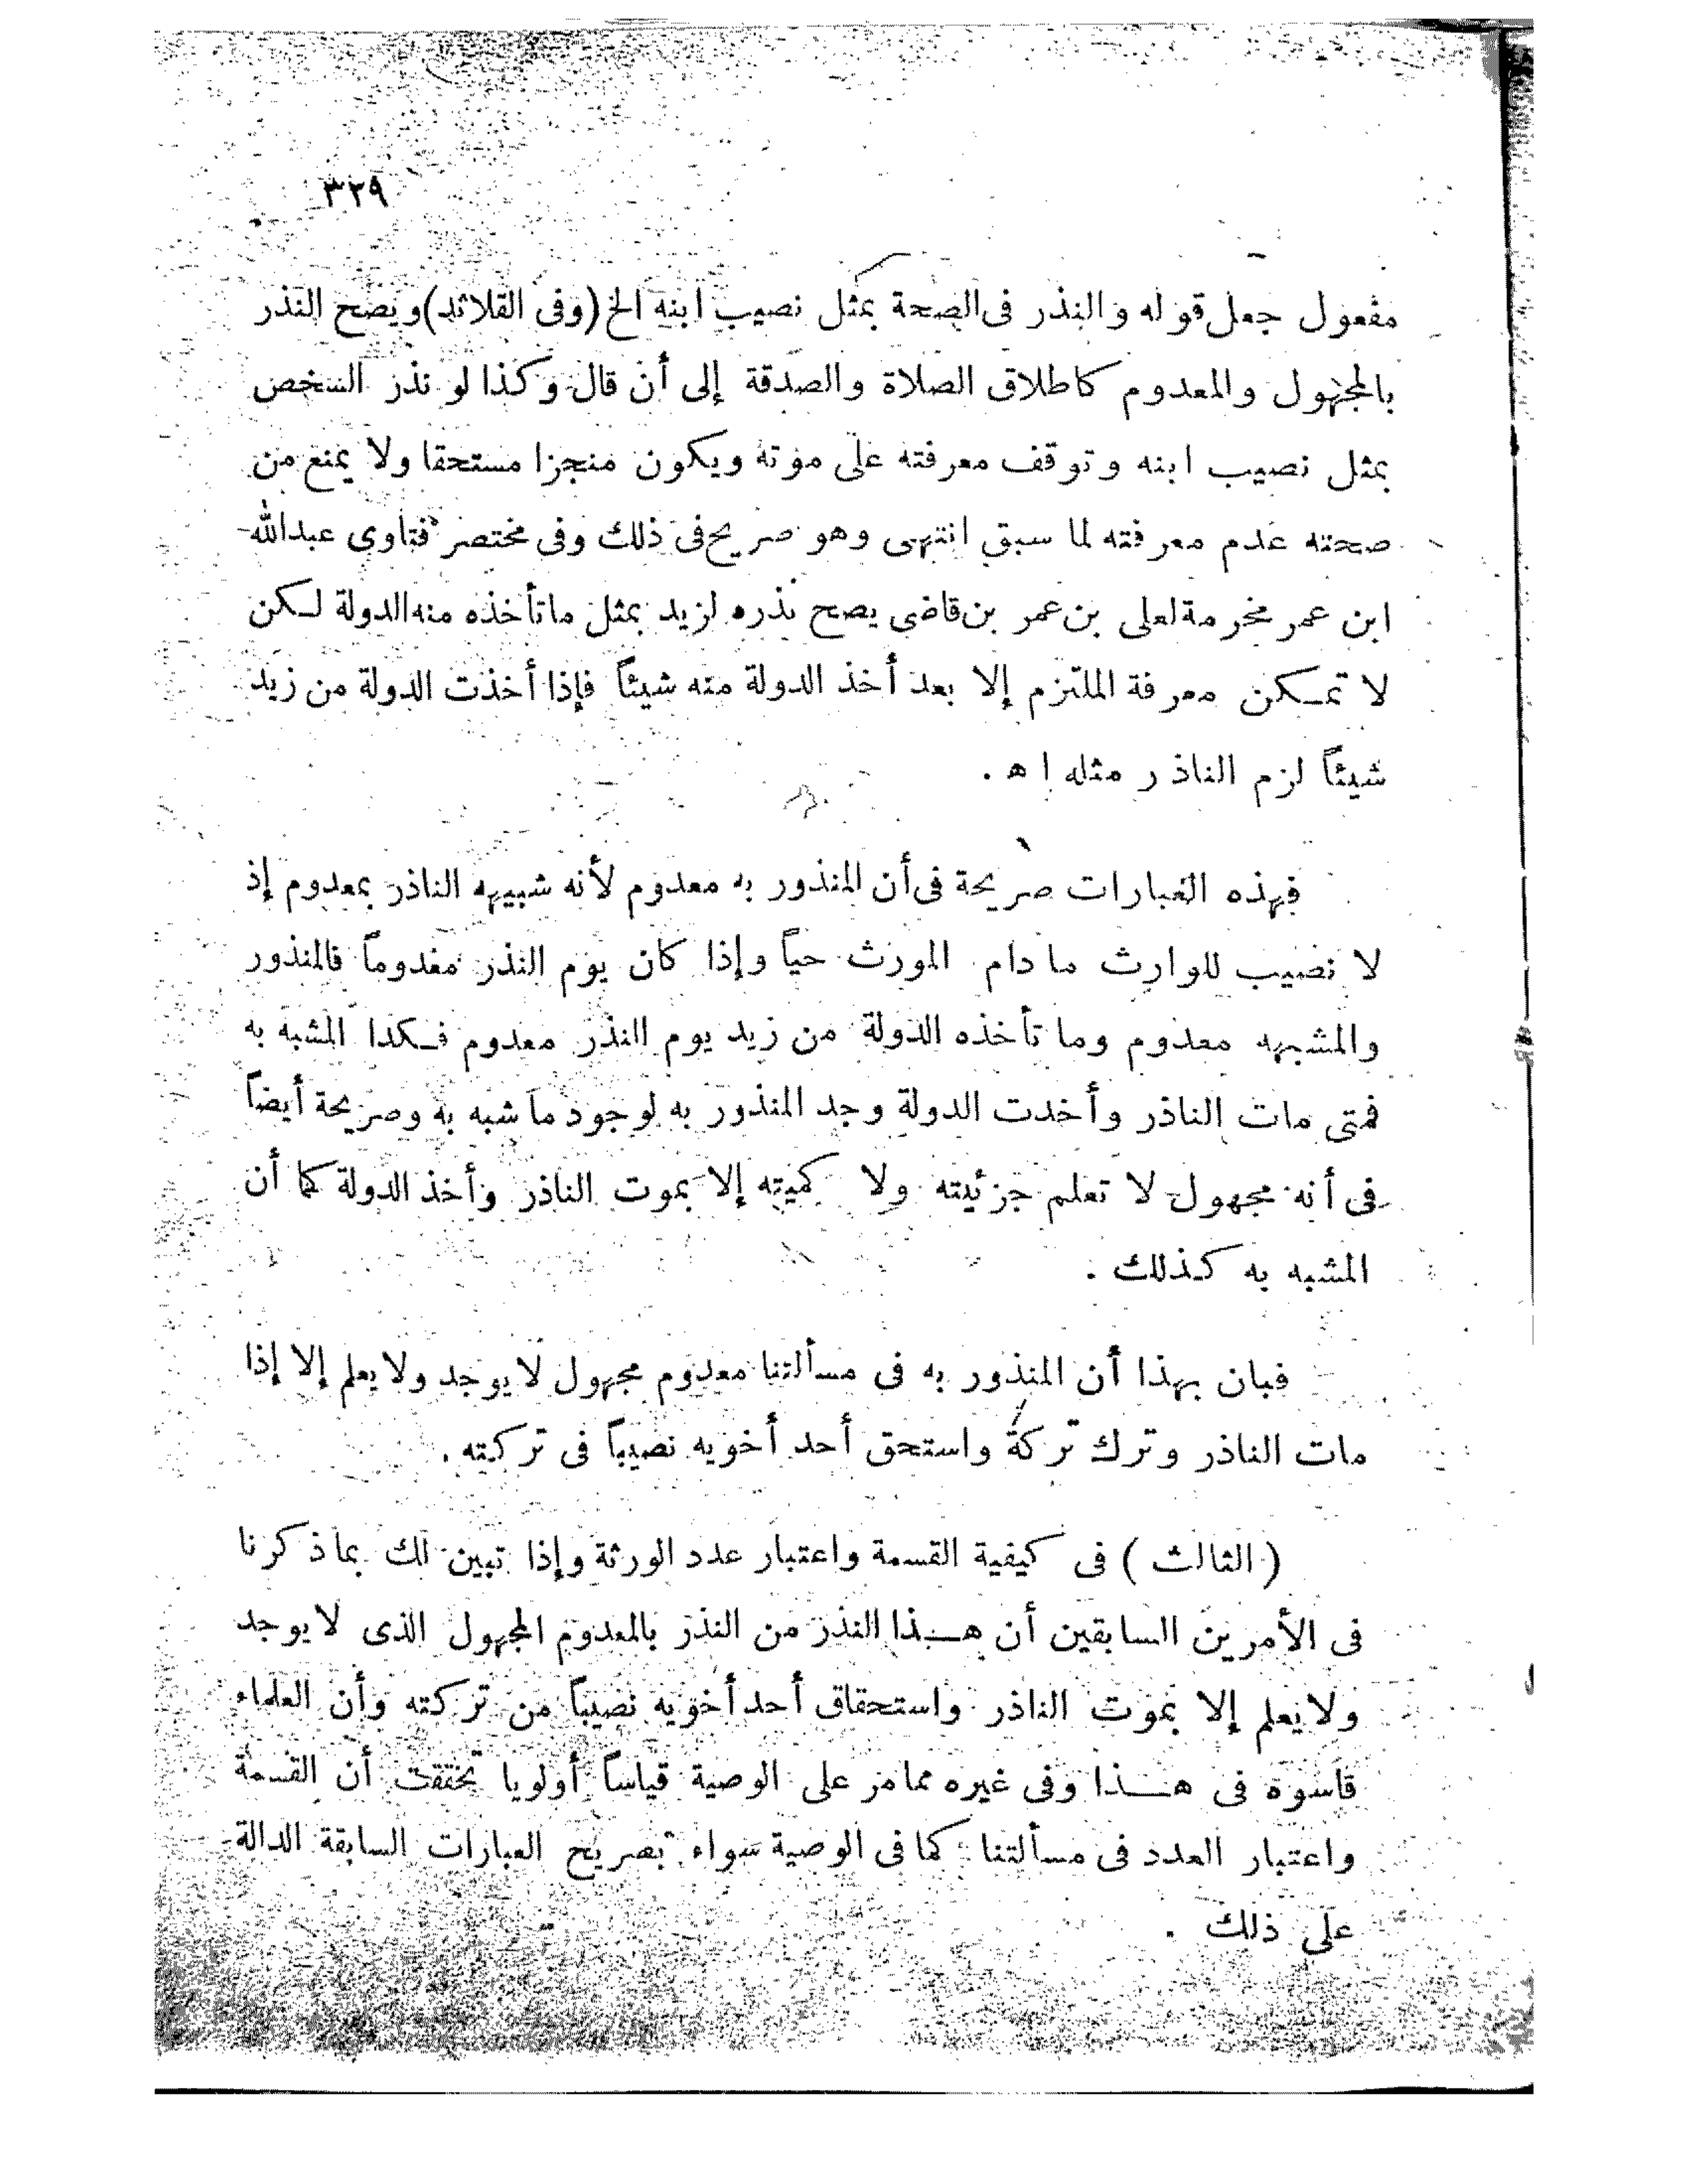 ٣٣٩
مفعول جعل قوله والنذر فى الصحة بمثل نصيب ابنه الخ (وفى القلائد) ويصح النذر
بالمجهول والمعدوم كاطلاق الصلاة والصدقة إلى أن قال وكذا لو نذر الشخص
بمثل نصيب ابنه وتوقف معرفته على موته ويكون منجزا مستحقا ولا يمنع من
صحته عدم معرفته لما سبق انتهى وهو صريح فى ذلك وفى مختصر فتاوى عبدالله
ابن عمر مخرمة لعلى بن عمر بن قاضى يصح نذره لزيد بمثل ما تأخذه منه الدولة لكن
لا تمكن معرفة الملتزم إلا بعد أخذ الدولة منه شيئاً فإذا أخذت الدولة من زيد
شيئاً لزم الناذر مثله ا ه .
فهذه العبارات صريحة فى أن المنذور به معدوم لأنه شبيهه الناذر بمعدوم إذ
لا نصيب للوارث ما دام المورث حياً وإذا كان يوم النذر معدوماً فالمنذور
والمشبهه معدوم وما تأخذه الدولة من زيد يوم النذر معدوم فكدا المشبه به
فمتى مات الناذر وأخدت الدولة وجد المنذور به لوجود ما شبه به وصريحة أيضاً
فى أنه مجهول لا تعلم جزئيته ولا كميته إلا بموت الناذر وأخذ الدولة كما أن
المشبه به كذلك .
فبان بهذا أن المنذور به فى مسألتنا معدوم مجهول لا يوجد ولا يعلم إلا إذا
مات الناذر وترك تركة واستحق أحد أخويه نصيباً فى تركته .
( الثالث ) فى كيفية القسمة واعتبار عدد الورثة وإذا تبين لك بما ذكرنا
فى الأمرين السابقين أن هذا النذر من النذر بالمعدوم المجهول الذى لا يوجد
ولا يعلم إلا بموت الناذر واستحقاق أحد أخويه نصيباً من تركته وأن العلماء
قاسوه فى هذا وفى غيره مما مر على الوصية قياساً أولويا تحققت أن القسمة
واعتبار العدد فى مسألتنا كما فى الوصية سواء بصريح العبارات السابقة الدالة
على ذلك .